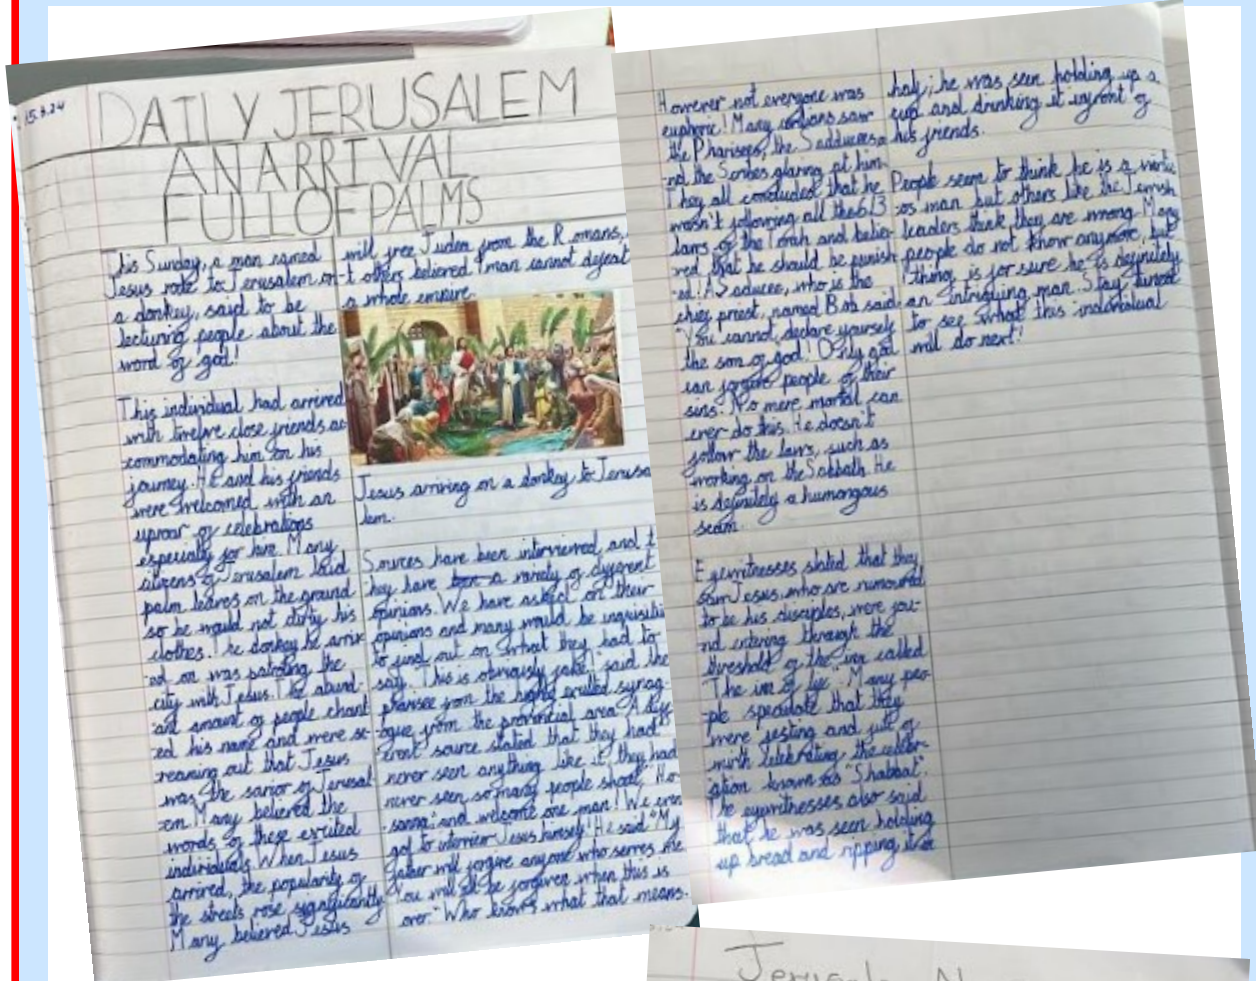 15.3.24
DAILY JERUSALEM
AN ARRIVAL
FULL OF PALMS
This Sunday, a man named
Jesus rode to Jerusalem on
a donkey, said to be
lecturing people about the
word of god!
This individual had arrived
with twelve close friends ac
-commodating him on his
journey. He and his friends
were welcomed with an
uproar of celebrations
especially for him. Many
citizens of Jerusalem laid
palm leaves on the ground
so he would not dirty his
clothes. The donkey he arriv
-ed on was patroling the
city with Jesus. The abund-
-ant amount of people chant
-ed his name and were sc-
-reaming out that Jesus
was the savior of Jerusal
-em. Many believed the
words of these excited
individuals. When Jesus
arrived, the popularity of
the streets rose significantly
Many believed Jesus
will free Judea from the Romans,
-t others believed 1 man cannot defeat
a whole empire.
Jesus arriving on a donkey to Jerusa
lem.
Sources have been interviewed, and t
hey have a variety of different
opinions. We have asked on their
opinions and many would be inquisitiv
to find out on what they had to
say. "This is obviously fake", said the
pharisee from the highly skilled synag-
-ogue from the provincial area. A diff
erent source stated that they had
never seen anything like it, they had
never seen so many people shout, "Ho-
-sanna" and welcome one man! We even
got to interview Jesus himself! He said "My
father will forgive anyone who serves me
You will all be forgiven when this is
over." Who knows what that means.
However not everyone was
euphoric! Many civilians saw
the Pharisees, the Sadducees a
-nd the Scribes glaring at him.
They all concluded that he
wasn't following all the 613
laws of the Torah and belie-
-ved that he should be punish
-ed! A Saducee, who is the
chief priest, named Bob said
"You cannot declare yourself
the son of god! Only god
can forgive people of their
sins. No mere mortal can
ever do this. He doesn't
follow the laws, such as
working on the Sabbath. He
is definitely a humongous
scam.
Eyewitnesses stated that they
saw Jesus, who are rumoured
to be his disciples, were fou-
-nd entering through the
threshold of the inn called
"The inn of life". Many peo-
-ple speculate that they
were jesting and full of
mirth celebrating, the celebr-
-ation known as "Shabbat".
The eyewitnesses also said
that he was seen holding
up bread and ripping it in
half; he was seen holding up a
cup and drinking it infront of
his friends.
People seem to think he is a virtu
-os man but others like the Jewish
leaders think they are wrong. Many
people do not know anymore, but
thing is for sure he is definitely
an intriguing man. Stay tuned
to see what this individual
will do next!